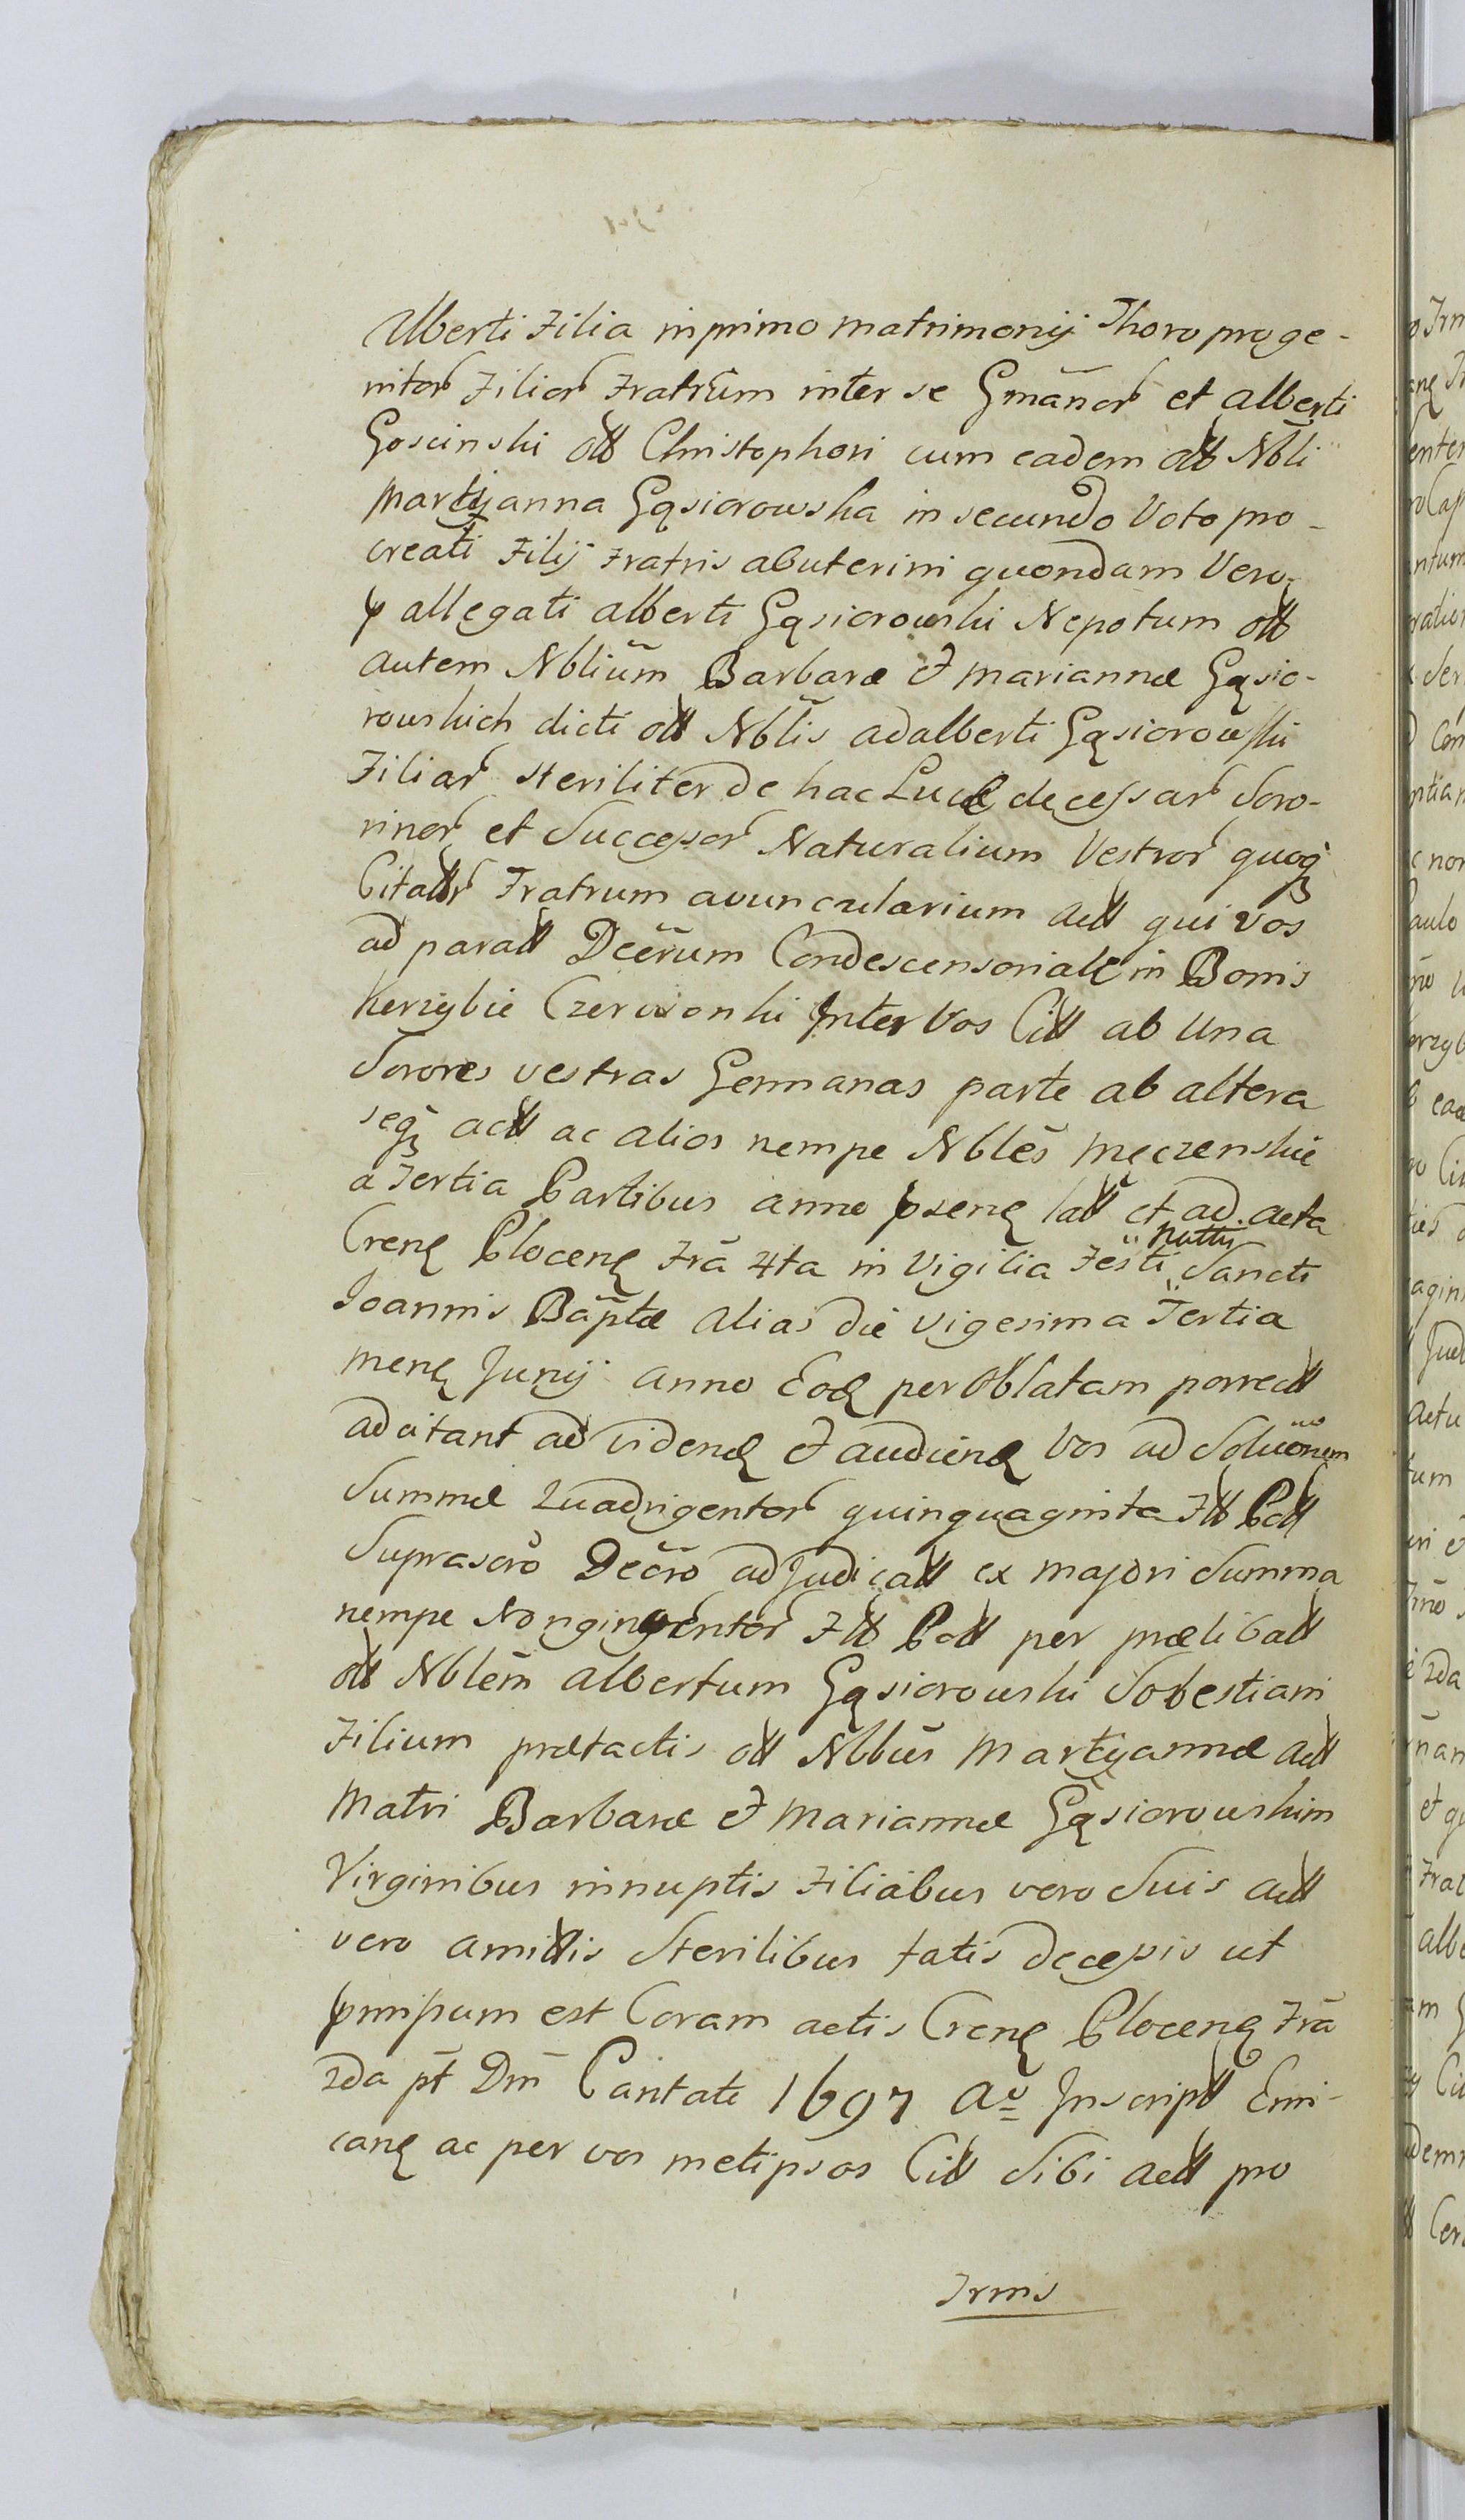 Alberti Filia in primo matrimonij Thoro proge-
nitor Filior Fratrum inter se Gmanor et Alberti
Goscinski olt Christophori cum eadem olt Nbli
Martyanna Gąsiorowska in secundo Voto pro-
creati Filij Fratris abuterini quondam Vero
p allegati Alberti Gąsiorowski Nepotum olt
autem Nblium Barbaræ et Mariannæ Gąsio-
rowskich dicti olt Nblis Adalberti Gąsiorowski
Filiar steriliter de hac Luce decessar Soro-
rinor et Successor Naturalium Vestror quoq
Citatt Fratrum avuncularium Actt qui vos
ad paratt Dcerum Condescensoriale in Bonis
Kerzybie Czerwonki Inter Vos Citt ab Una
Sorores vestras Germanas parte ab altera
seq actt ac alios nempe Nbles Męczenskie
a Tertia Partibus anno psenę latt et ad acta
Crenę Plocenę Fra 4ta in Vigilia Festi Nattis Sancti
Joannis Baptæ alias die vigesima Tertia
menę Junij anno Eodę per Oblatam porrectt
adcitant ad videndę et audiendę Vos ad Soluonem
Summæ Quadrigentor quinquaginta Fltt Poltt
Suprascro Decro adjudicatt ex majori Summa
nempe Nongingentor Fltt Poltt per prælibatt
olt Nblem Albertum Gąsiorowski Sobestiani
Filium prætactis olt Nblbus Martyannæ actt
Matri Barbaræ et Mariannæ Gąsiorowskim
Virginibus innuptis Filiabus vero Suis actt
vero amittis Sterilibus fatis decessis ut
pmissum est Coram actis Crenę Plocenę Fra
2da pt Dm Cantate 1697 Ao Inscriptt Emi-
canę ac per vos metipsos Citt Sibi actt pro
Frmis